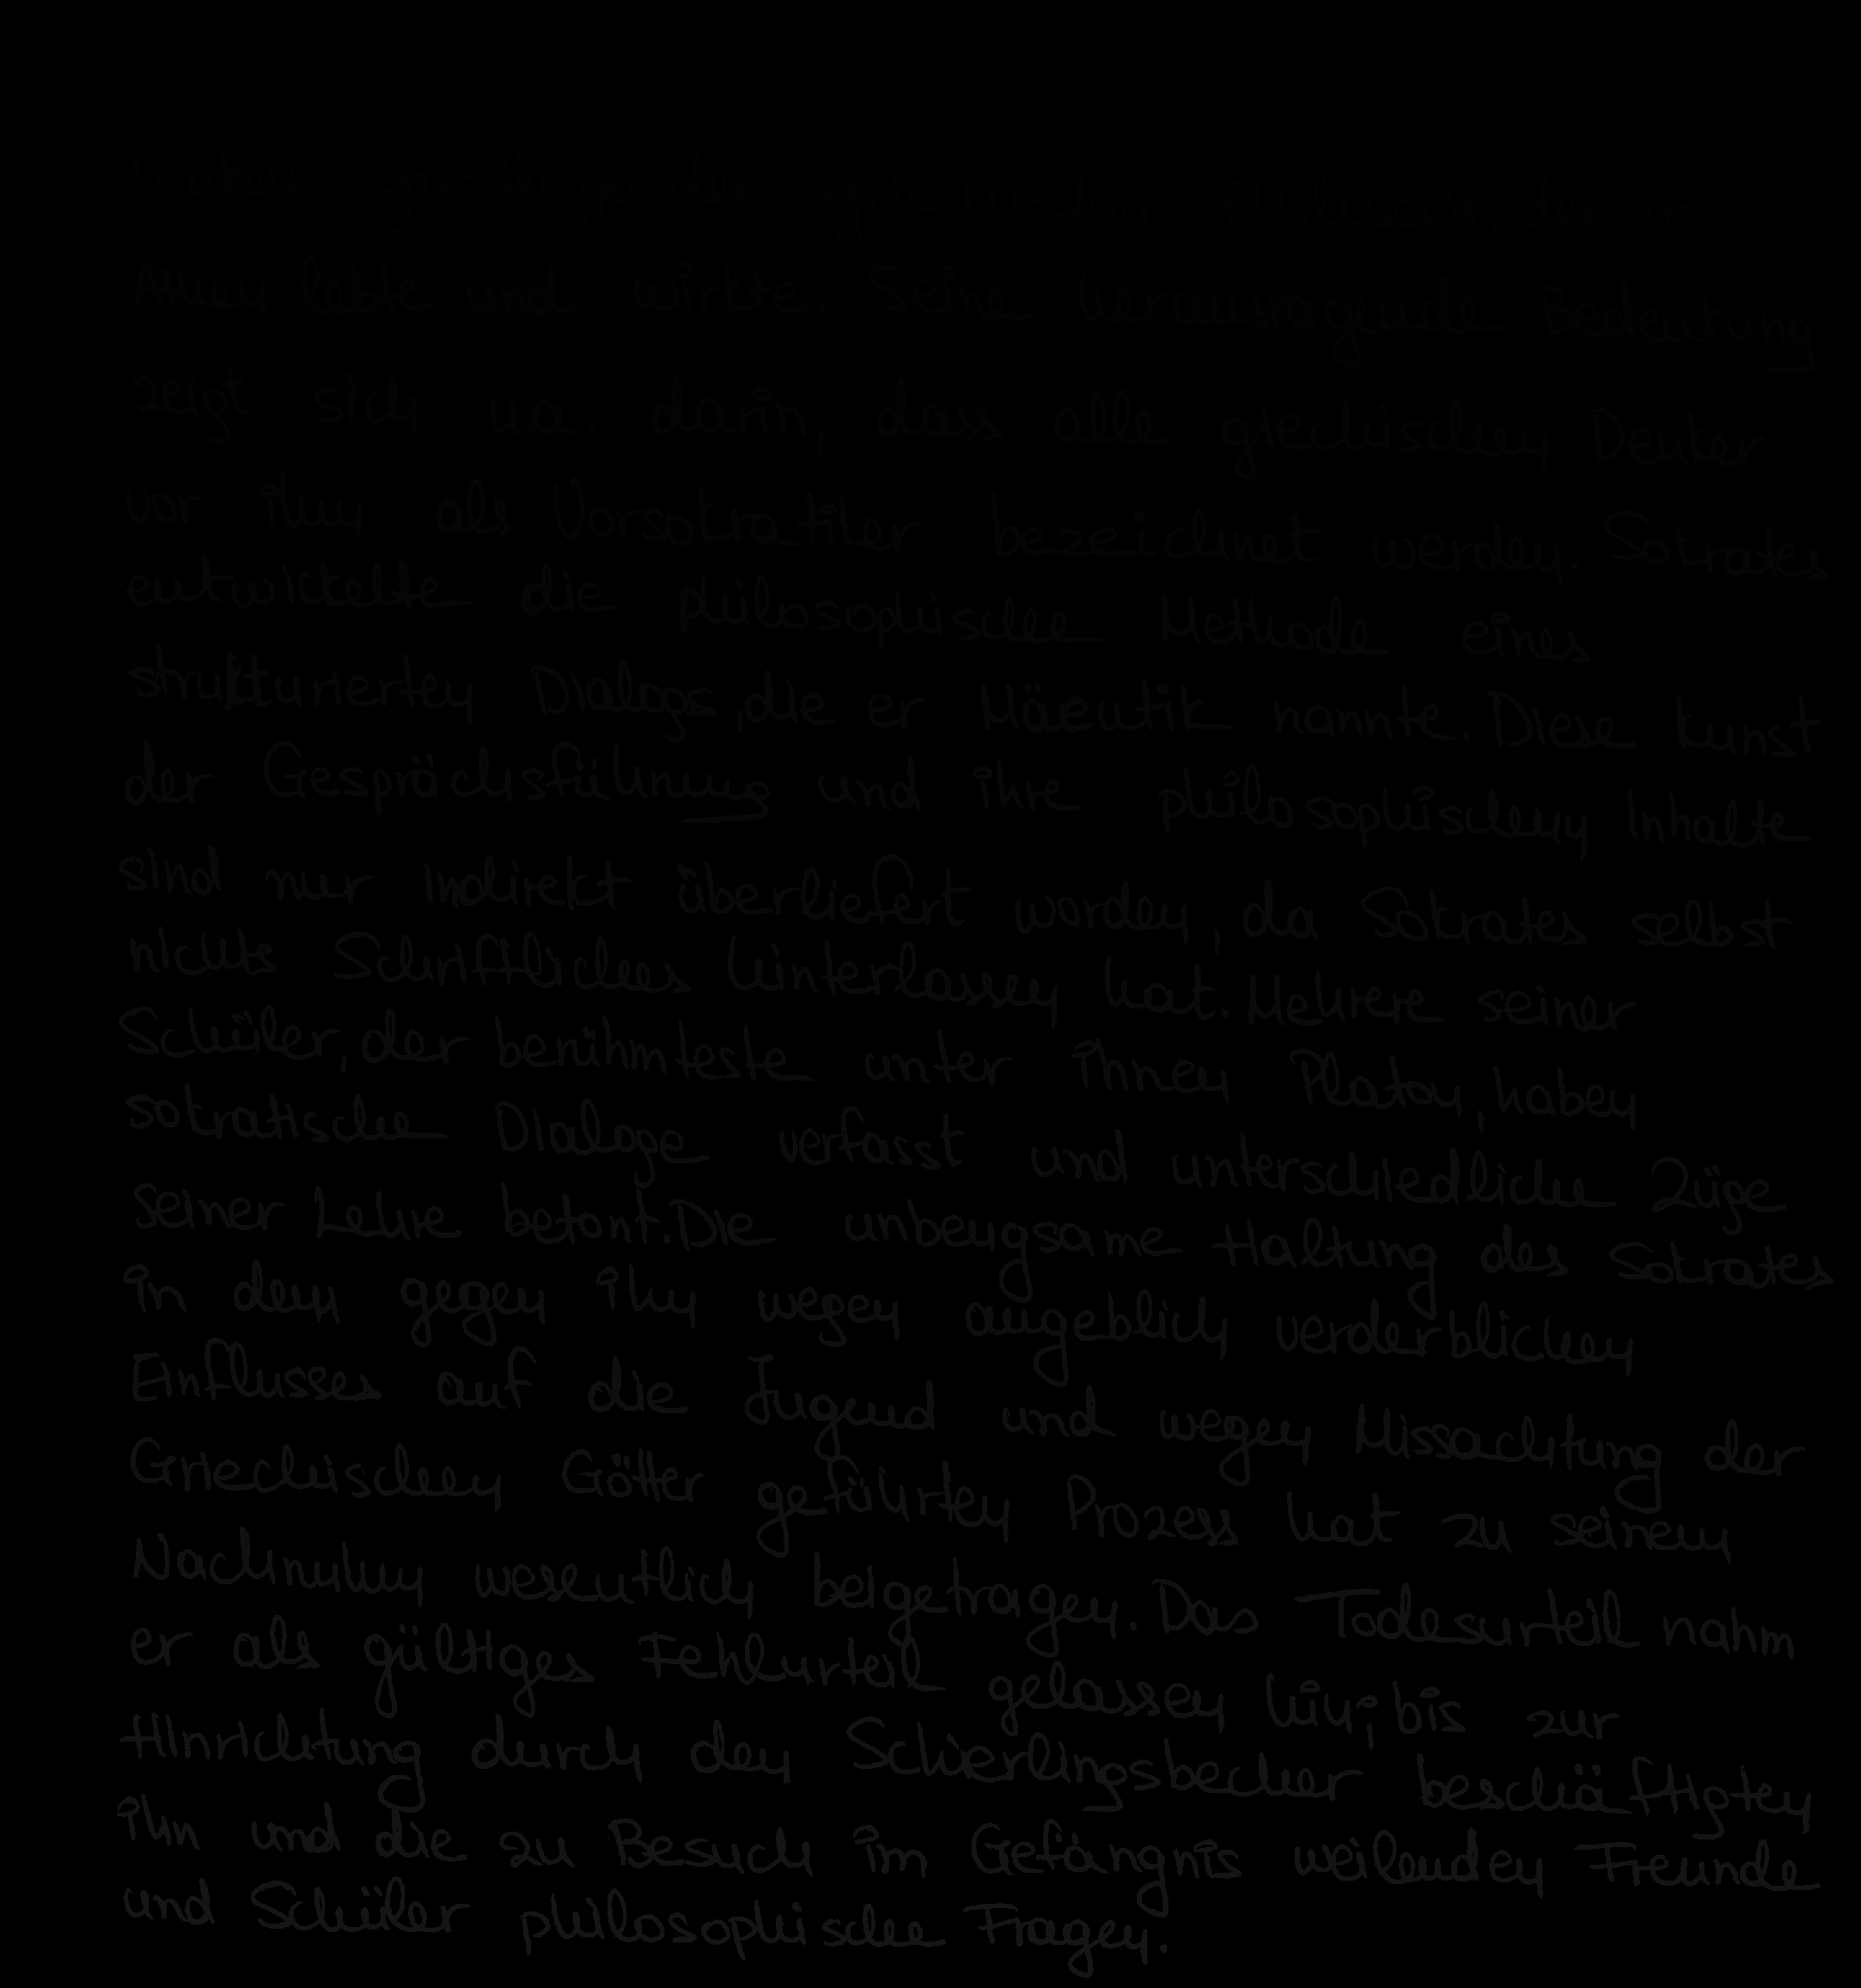 Sokrates war ein für das abendländische
Denken grundlegender griechischer Philosoph, der in
Athen lebte und wirkte. Seine herausragende Bedeutung
zeigt sich u.a. darin, dass alle griechischen Denker
vor ihm als Vorsokratiker bezeichnet werden. Sokrates
entwickelte die philosophische Methode eines
strukturierten Dialogs, die er Mäeutik nannte. Diese Kunst
der Gesprächsführung und ihre philosophischen Inhalte
sind nur indirekt überliefert worden, da Sokrates selbst
nichts Schriftliches hinterlassen hat. Mehrere seiner
Schüler, der berühmteste unter ihnen Platon, haben
sokratische Dialoge verfasst und unterschiedliche Züge
seiner Lehre betont. Die unbeugsame Haltung des Sokrates
in dem gegen ihn wegen angeblich verderblichen
Einflusses auf die Jugend und wegen Missachtung der
Griechischen Götter geführten Prozess hat zu seinem
Nachruhm wesentlich beigetragen. Das Todesurteil nahm
er als gültiges Fehlurteil gelassen hin; bis zur
Hinrichtung durch den Schierlingsbecher beschäftigten
ihn und die zu Besuch im Gefängnis weilenden Freunde
und Schüler philosophische Fragen.